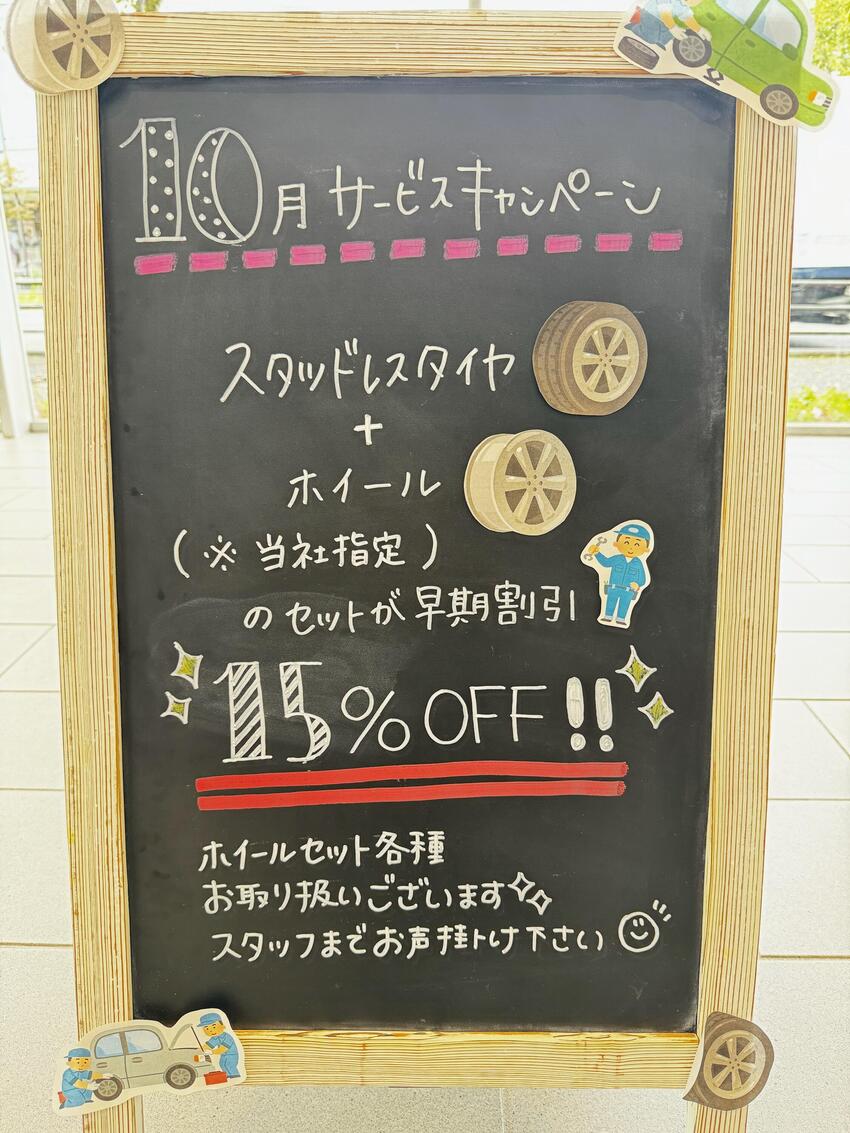 10月 サービスキャンペーン
スタッドレスタイヤ
+
ホイール
(※ 当社指定)
のセットが早期割引
15% OFF!!
ホイールセット各種
お取り扱いございます
スタッフまでお声掛け下さい